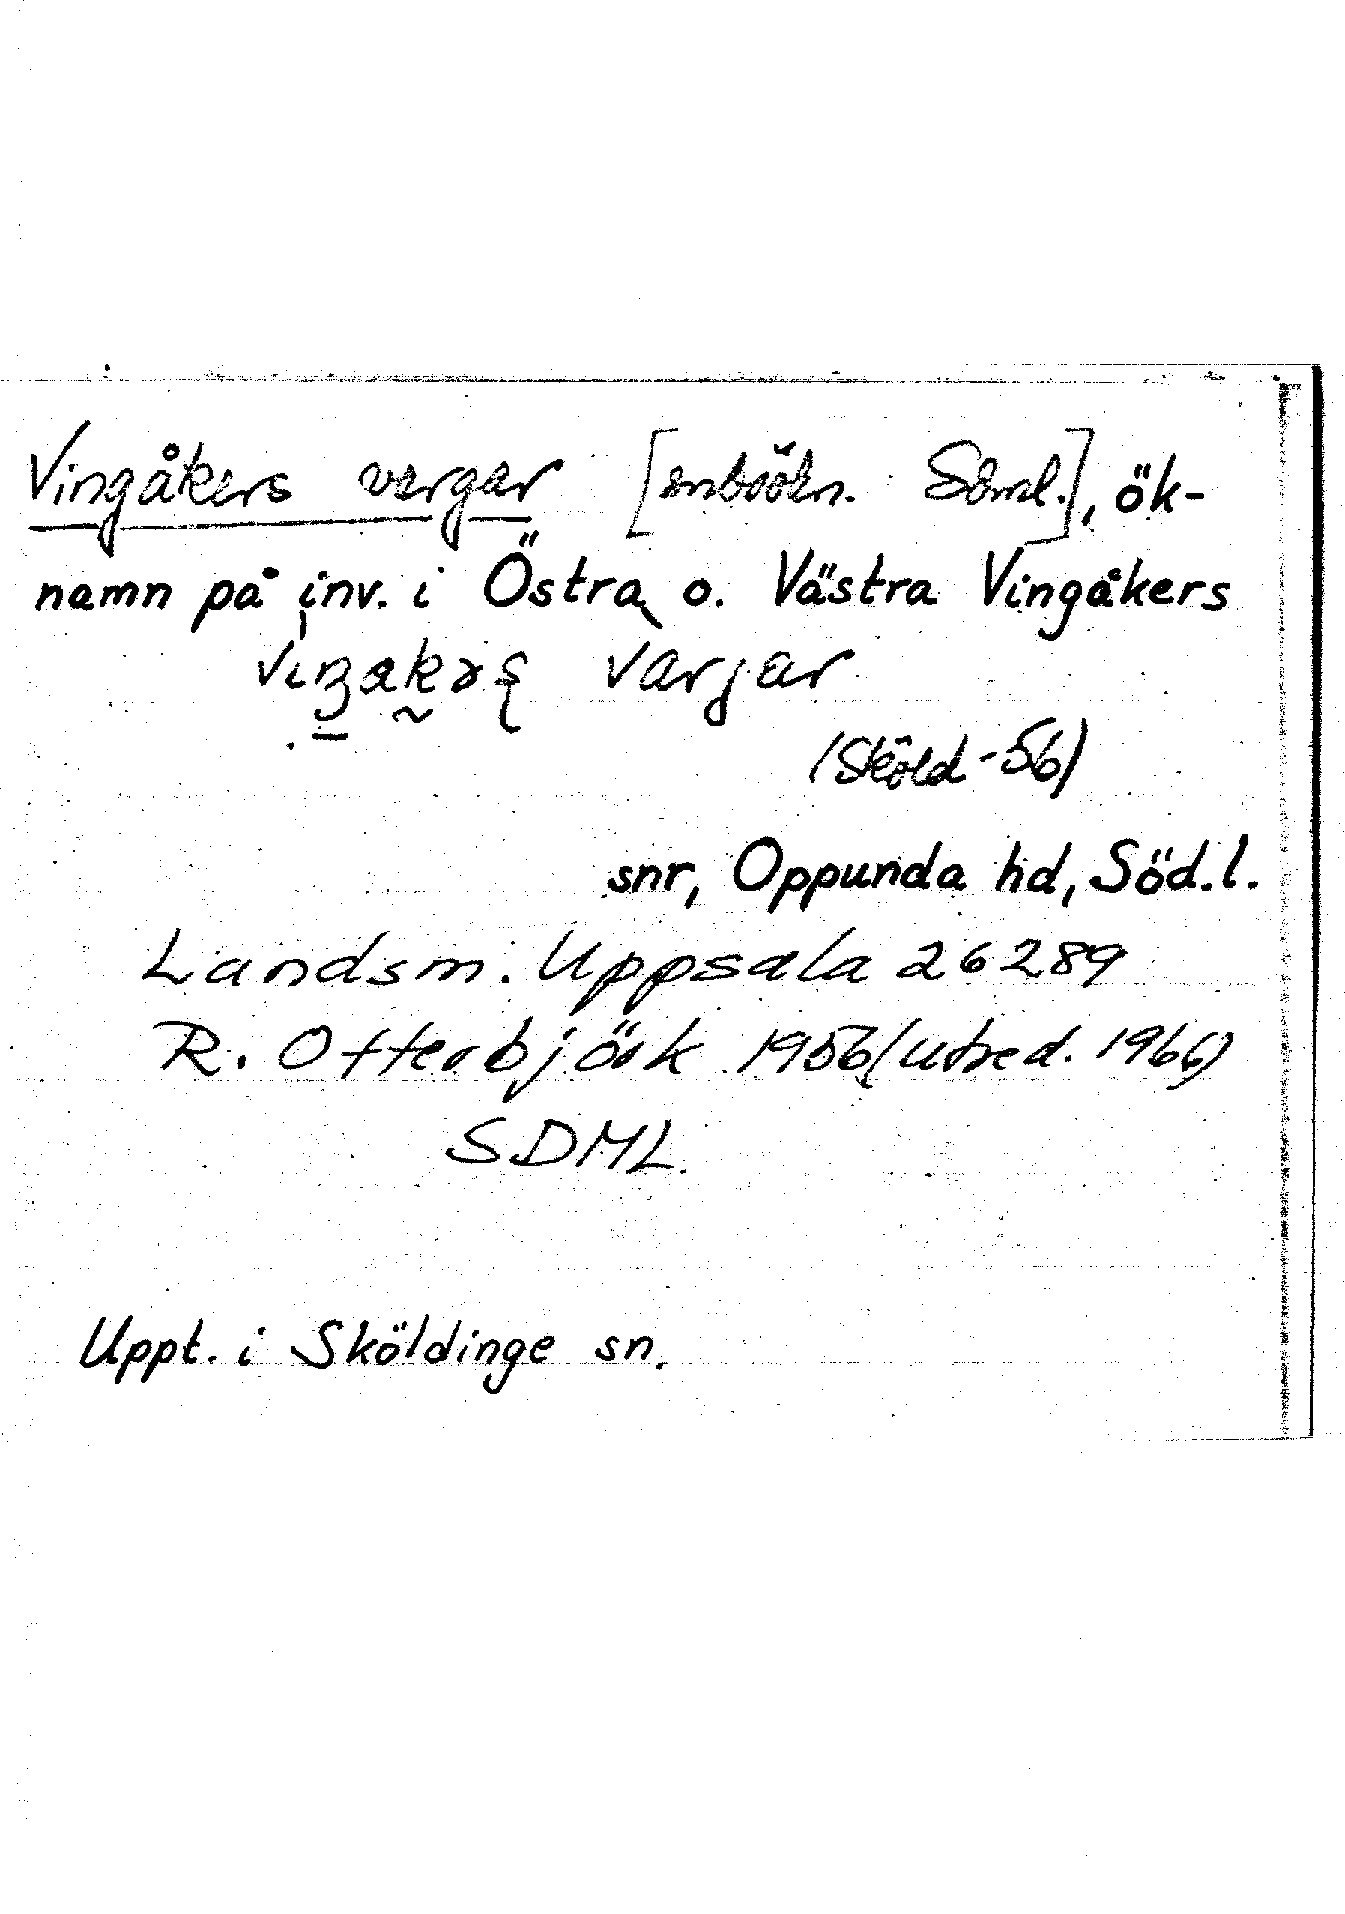 Vingåkers vargar [inböökn. Söml.], ök-
namn på inv. i Östra o. Västra Vingåkers
vargar
(Sköld -56)
snr, Oppunda hd, Söd.l.
Landsm. Uppsala 26289
R. Otterbjörk 1956 (utred. 1966)
SDML.
Uppt. i Sköldinge sn.